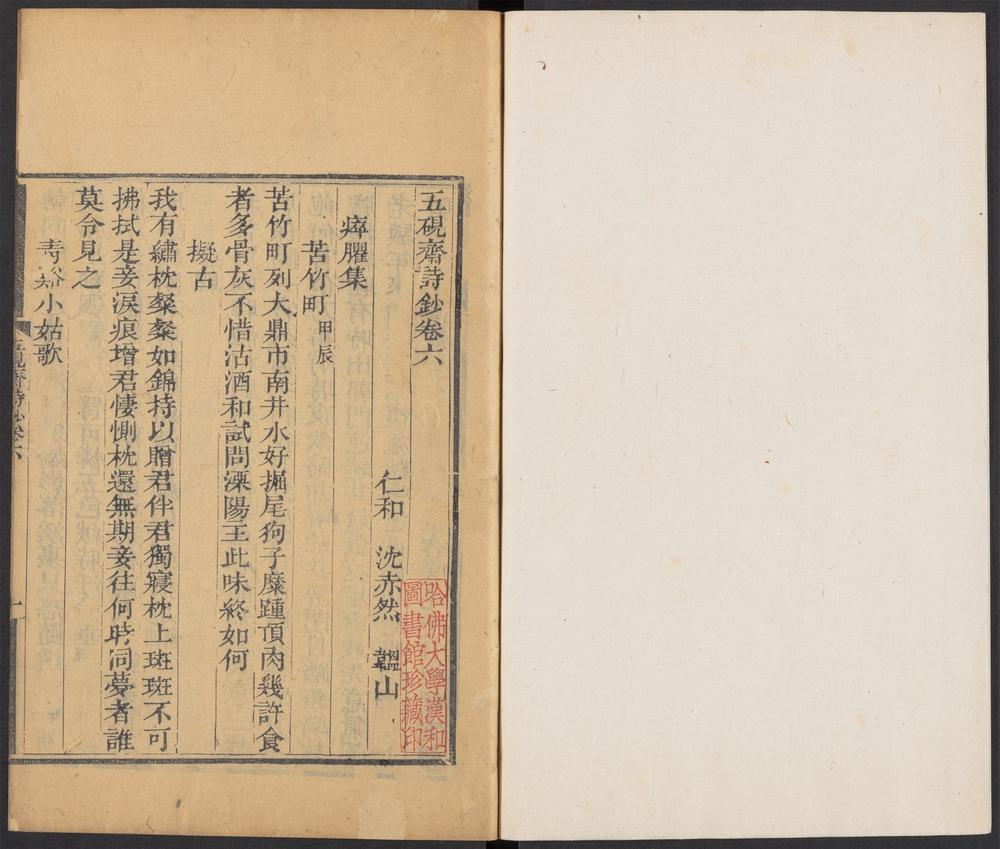 五硯齋詩鈔卷六
仁和 沈赤然 韞山
瘁臞集
苦竹町甲辰
苦竹町列大鼎市南井水好掘尾狗子糜踵頂肉幾許食
者多骨灰不惜沽酒和試問溧陽主此味終如何
擬古
我有繡枕粲粲如錦持以贈君伴君獨寢枕上斑斑不可
拂拭是妾淚痕增君悽惻枕還無期妾往何時同夢者誰
莫令見之
壽谿小姑歌
五硯齋詩鈔卷六
一
哈佛大學漢和
圖書館珍藏印